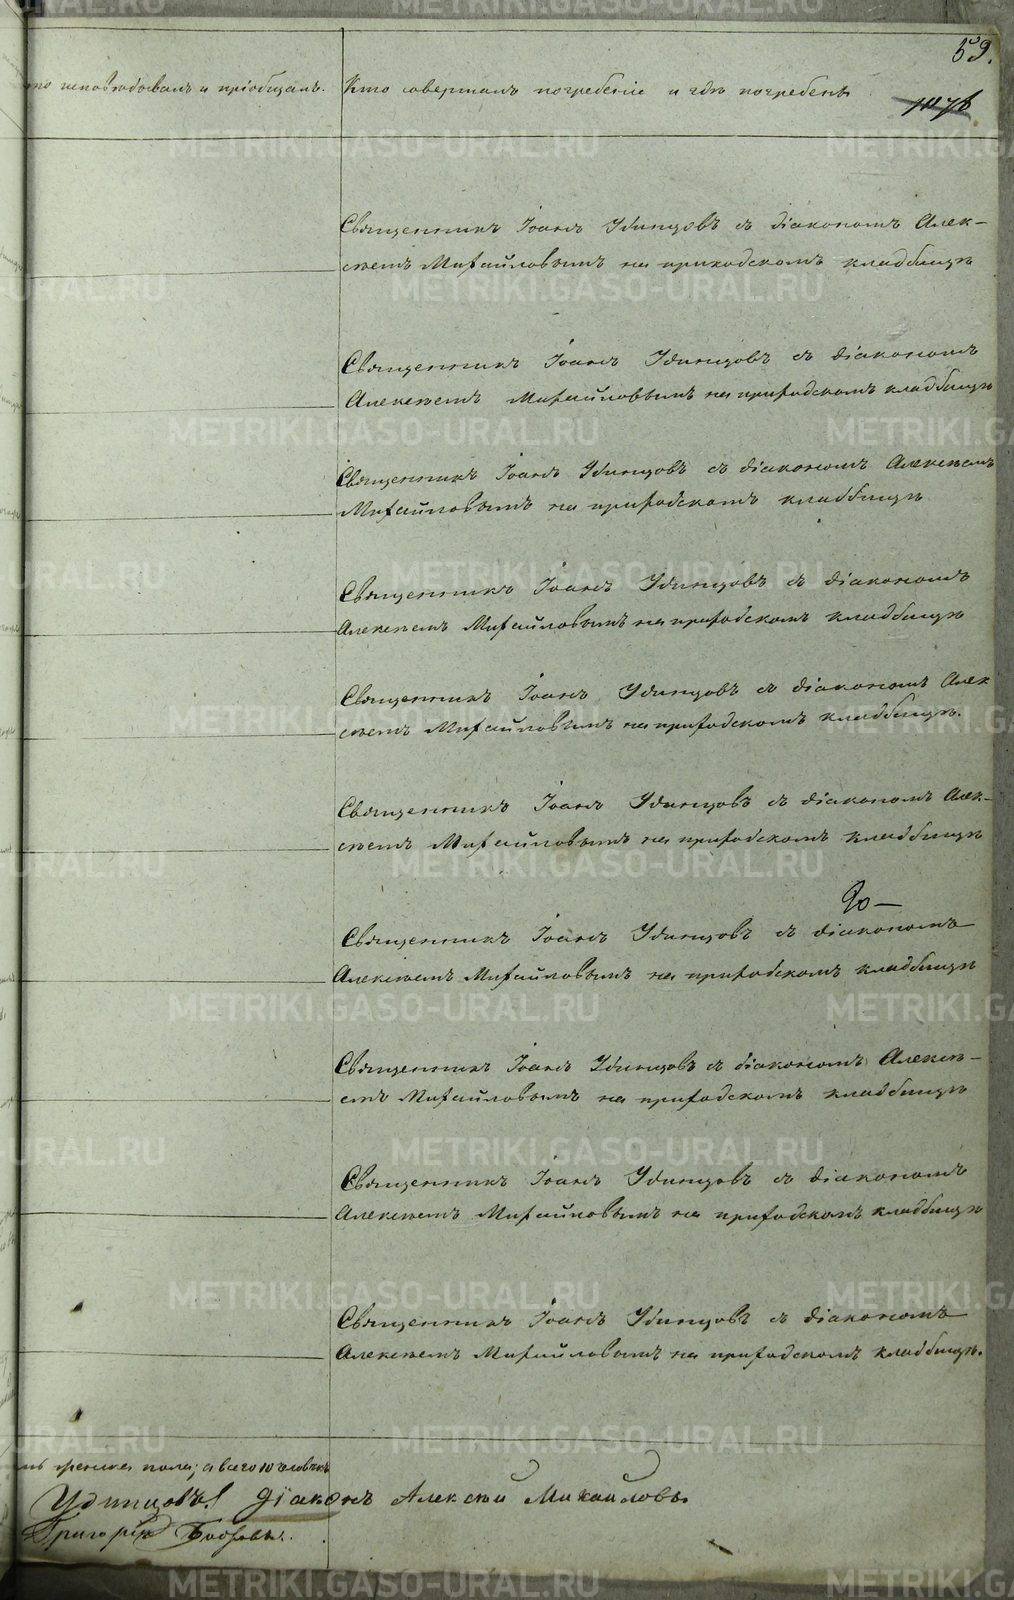 59.
Кто исповѣдывалъ и пріобщалъ. Кто совершалъ погребеніе и гдѣ погребены
Священникъ Іоаннъ Удинцовъ съ діакономъ Алек-
сѣемъ Михайловымъ на приходскомъ кладбищѣ
Священникъ Іоаннъ Удинцовъ съ діакономъ
Алексѣемъ Михайловымъ на приходскомъ кладбищѣ
Священникъ Іоаннъ Удинцовъ съ діакономъ Алексѣемъ
Михайловымъ на приходскомъ кладбищѣ
Священникъ Іоаннъ Удинцовъ съ діакономъ
Алексѣемъ Михайловымъ на приходскомъ кладбищѣ
Священникъ Іоаннъ Удинцовъ съ діакономъ Алек
сѣемъ Михайловымъ на приходскомъ кладбищѣ.
Священникъ Іоаннъ Удинцовъ съ діакономъ Алек-
сѣемъ Михайловымъ на приходскомъ кладбищѣ
Священникъ Іоаннъ Удинцовъ съ діакономъ
Алексѣемъ Михайловымъ на приходскомъ кладбищѣ
Священникъ Іоаннъ Удинцовъ съ діакономъ Алексѣ-
емъ Михайловымъ на приходскомъ кладбищѣ
Священникъ Іоаннъ Удинцовъ съ діакономъ
Алексѣемъ Михайловымъ на приходскомъ кладбищѣ
Священникъ Іоаннъ Удинцовъ съ діакономъ
Алексѣемъ Михайловымъ на приходскомъ кладбищѣ.
женска пола; а всего 10 человѣкъ
Удинцовъ. Діаконъ Алексѣй Михайловъ
Григорій Бобровъ.
METRIKI.GASO-URAL.RU